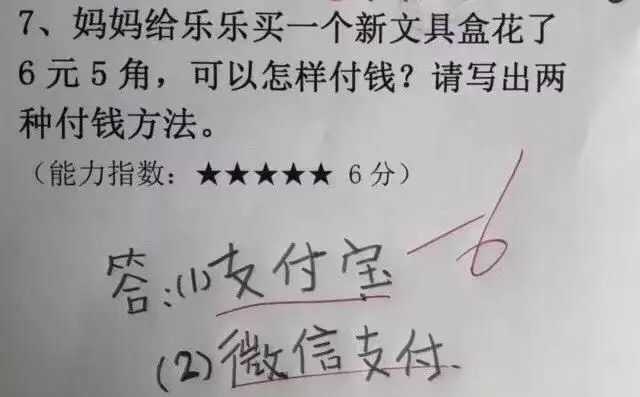 7、妈妈给乐乐买一个新文具盒花了
6元5角，可以怎样付钱？请写出两
种付钱方法。
（能力指数：★★★★★ 6分）
答:(1)支付宝 -6
(2)微信支付.